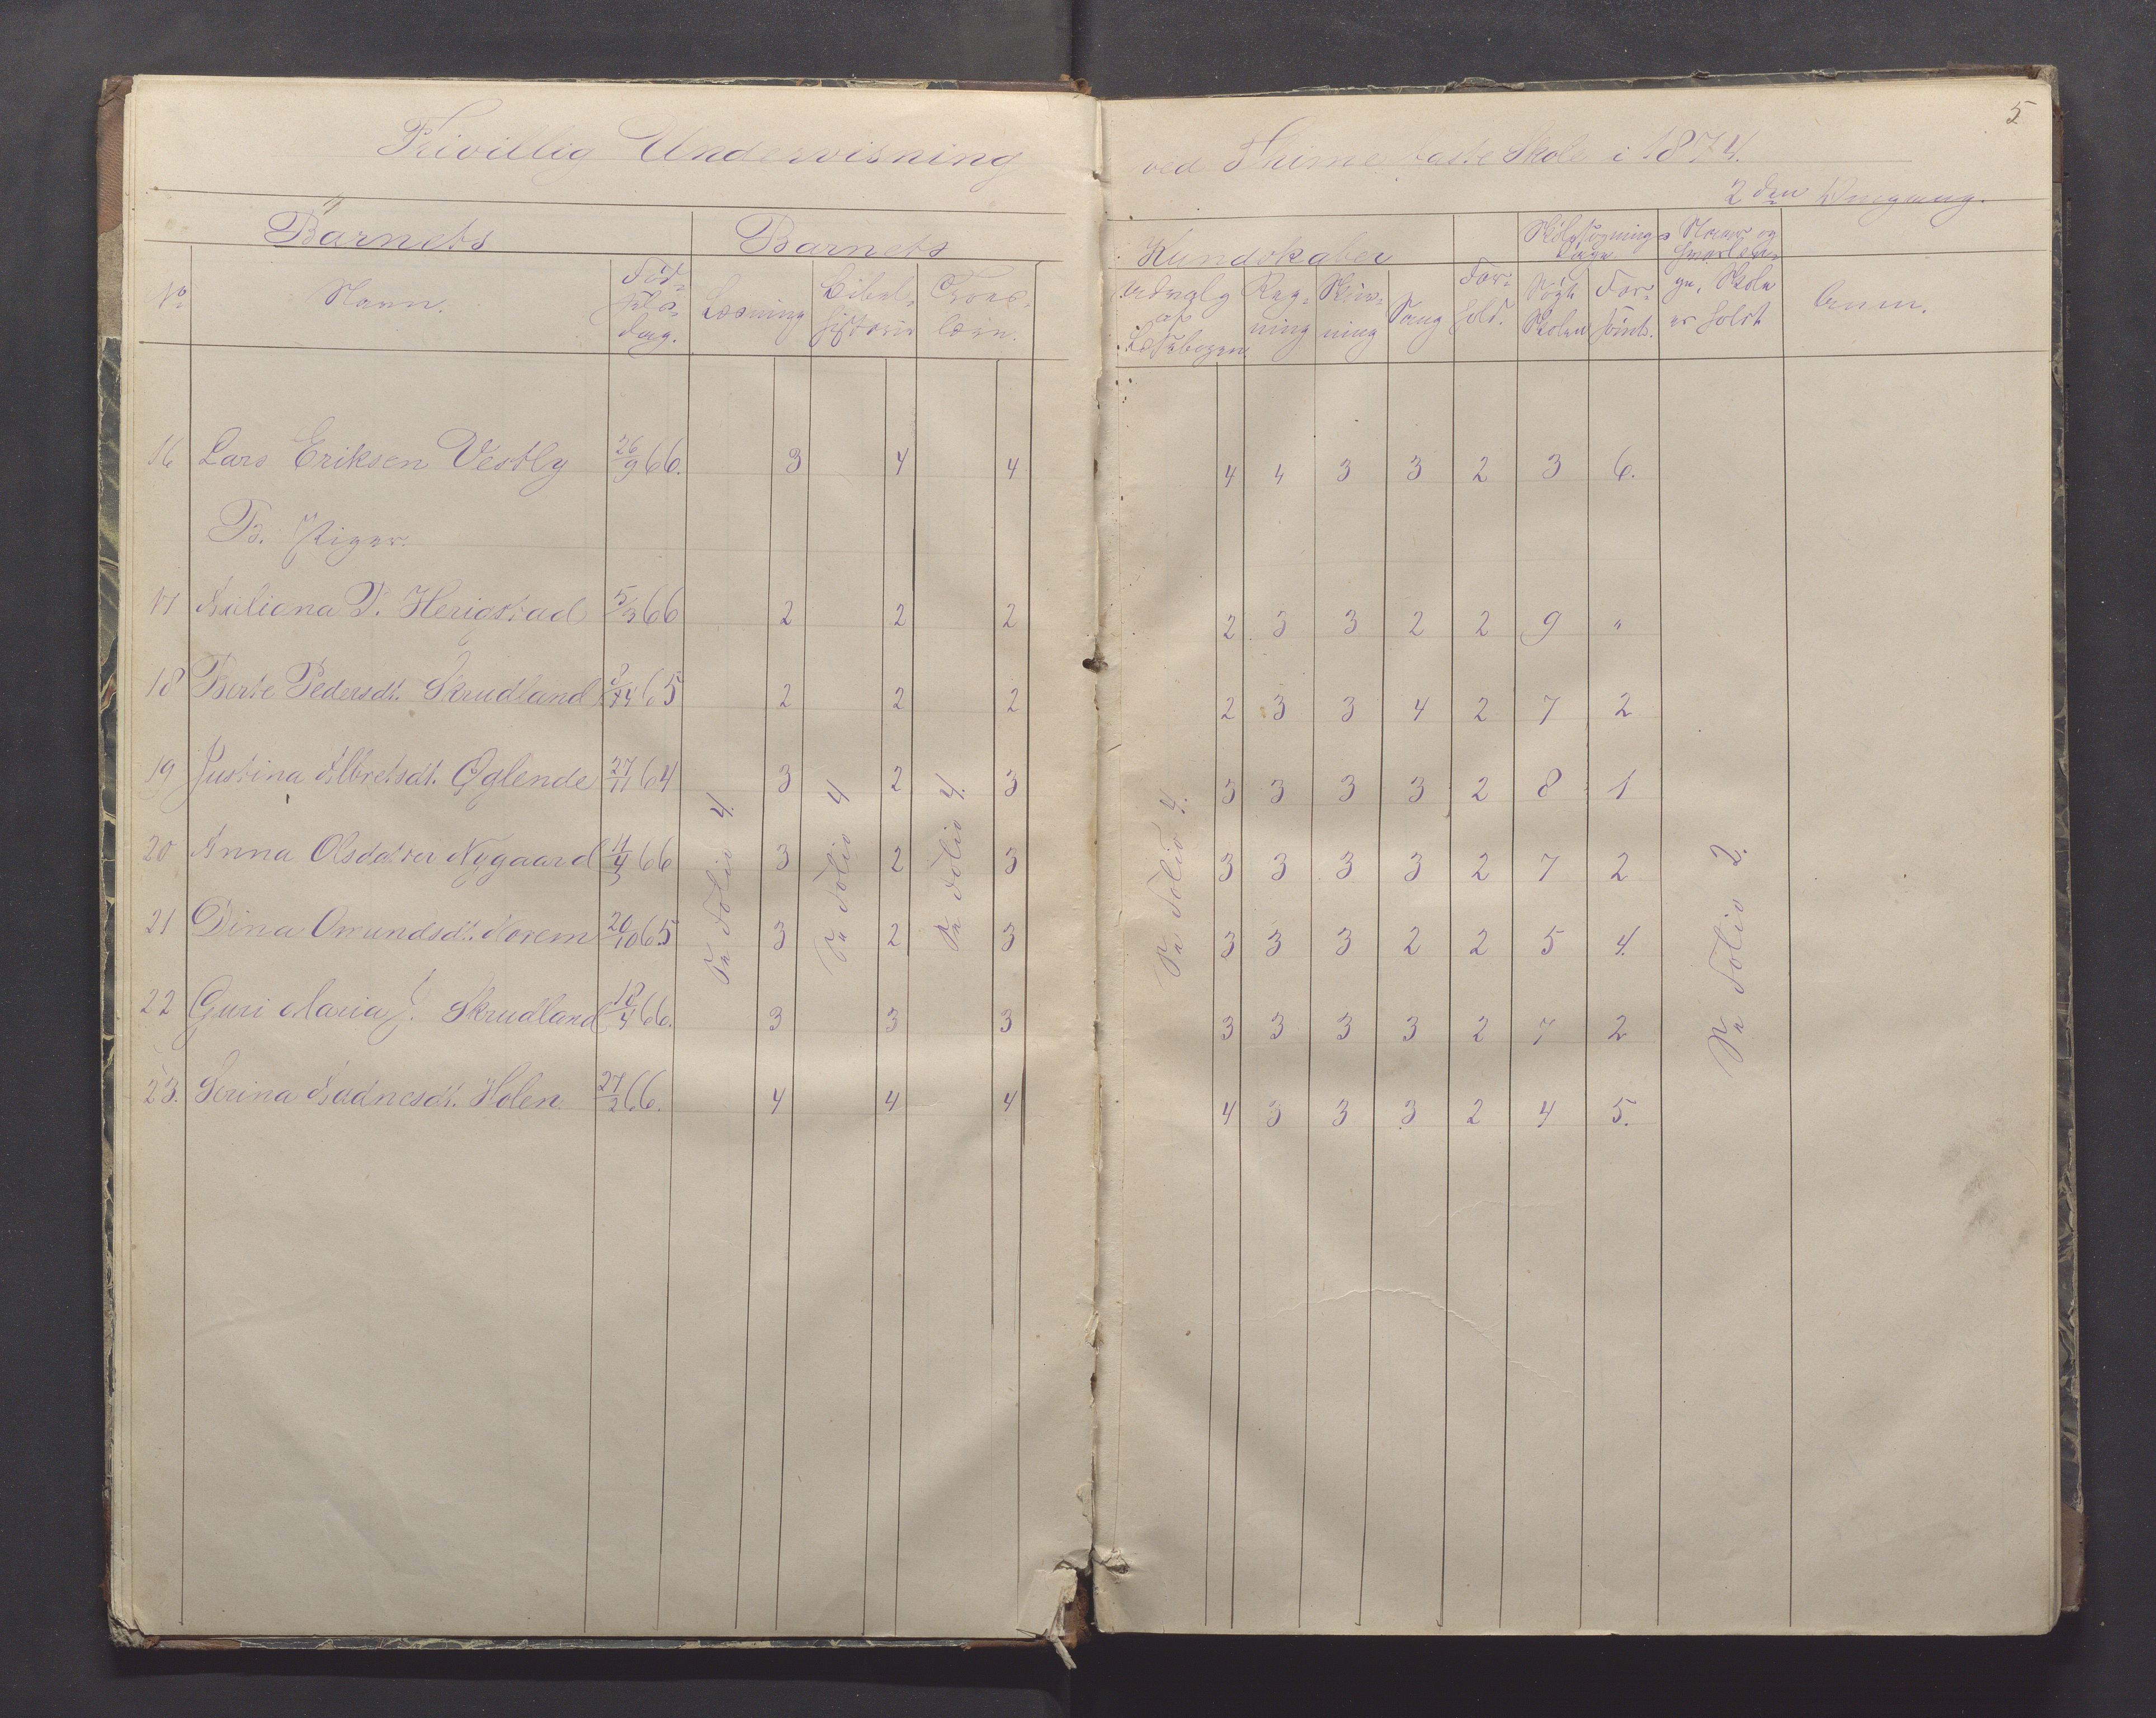 5
Frivillig Undervisning ved Thime faste Skole i 1874.
2den Omgang.
Barnets Barnets Kundskaber Skolesøgnings Dage
No Navn. Fødselsdag. Læsning Bibelhistorie Troeslære. Udvalg af Læsebogen Regning Skrivning Sang Forhold. Søgt Skolen Forsømt. Naar og hvorlænge Skole er holdt Anm.
16 Lars Eriksen Vestly 26/9 66. 3 4 4 4 4 3 3 2 3 6.
B. Piger.
17 Juliana T. Herigstad 5/3 66 2 2 2 2 3 3 2 2 9 "
18 Berte Pedersdt. Skrudland 65 2 2 2 2 3 3 4 2 7 2
19 Justina Albretsdt. Øglende 27/11 64 3 2 3 3 3 3 3 2 8 1
20 Anna Olsdatter Nygaard 11/4 66 3 2 3 3 3 3 3 2 7 2
21 Dina Omundsdt. Norem 20/10 65 3 2 3 3 3 3 2 2 5 4.
22 Guri Maria J. Skrudland 18/4 66. 3 3 3 3 3 3 3 2 7 2
23. Serina Aadnesdt. Holen 27/2 66. 4 4 4 4 3 3 3 2 4 5.
Se Folio 4.
Se Folio 4
Se Folio 4.
Se Folio 4.
Se Folio 2.